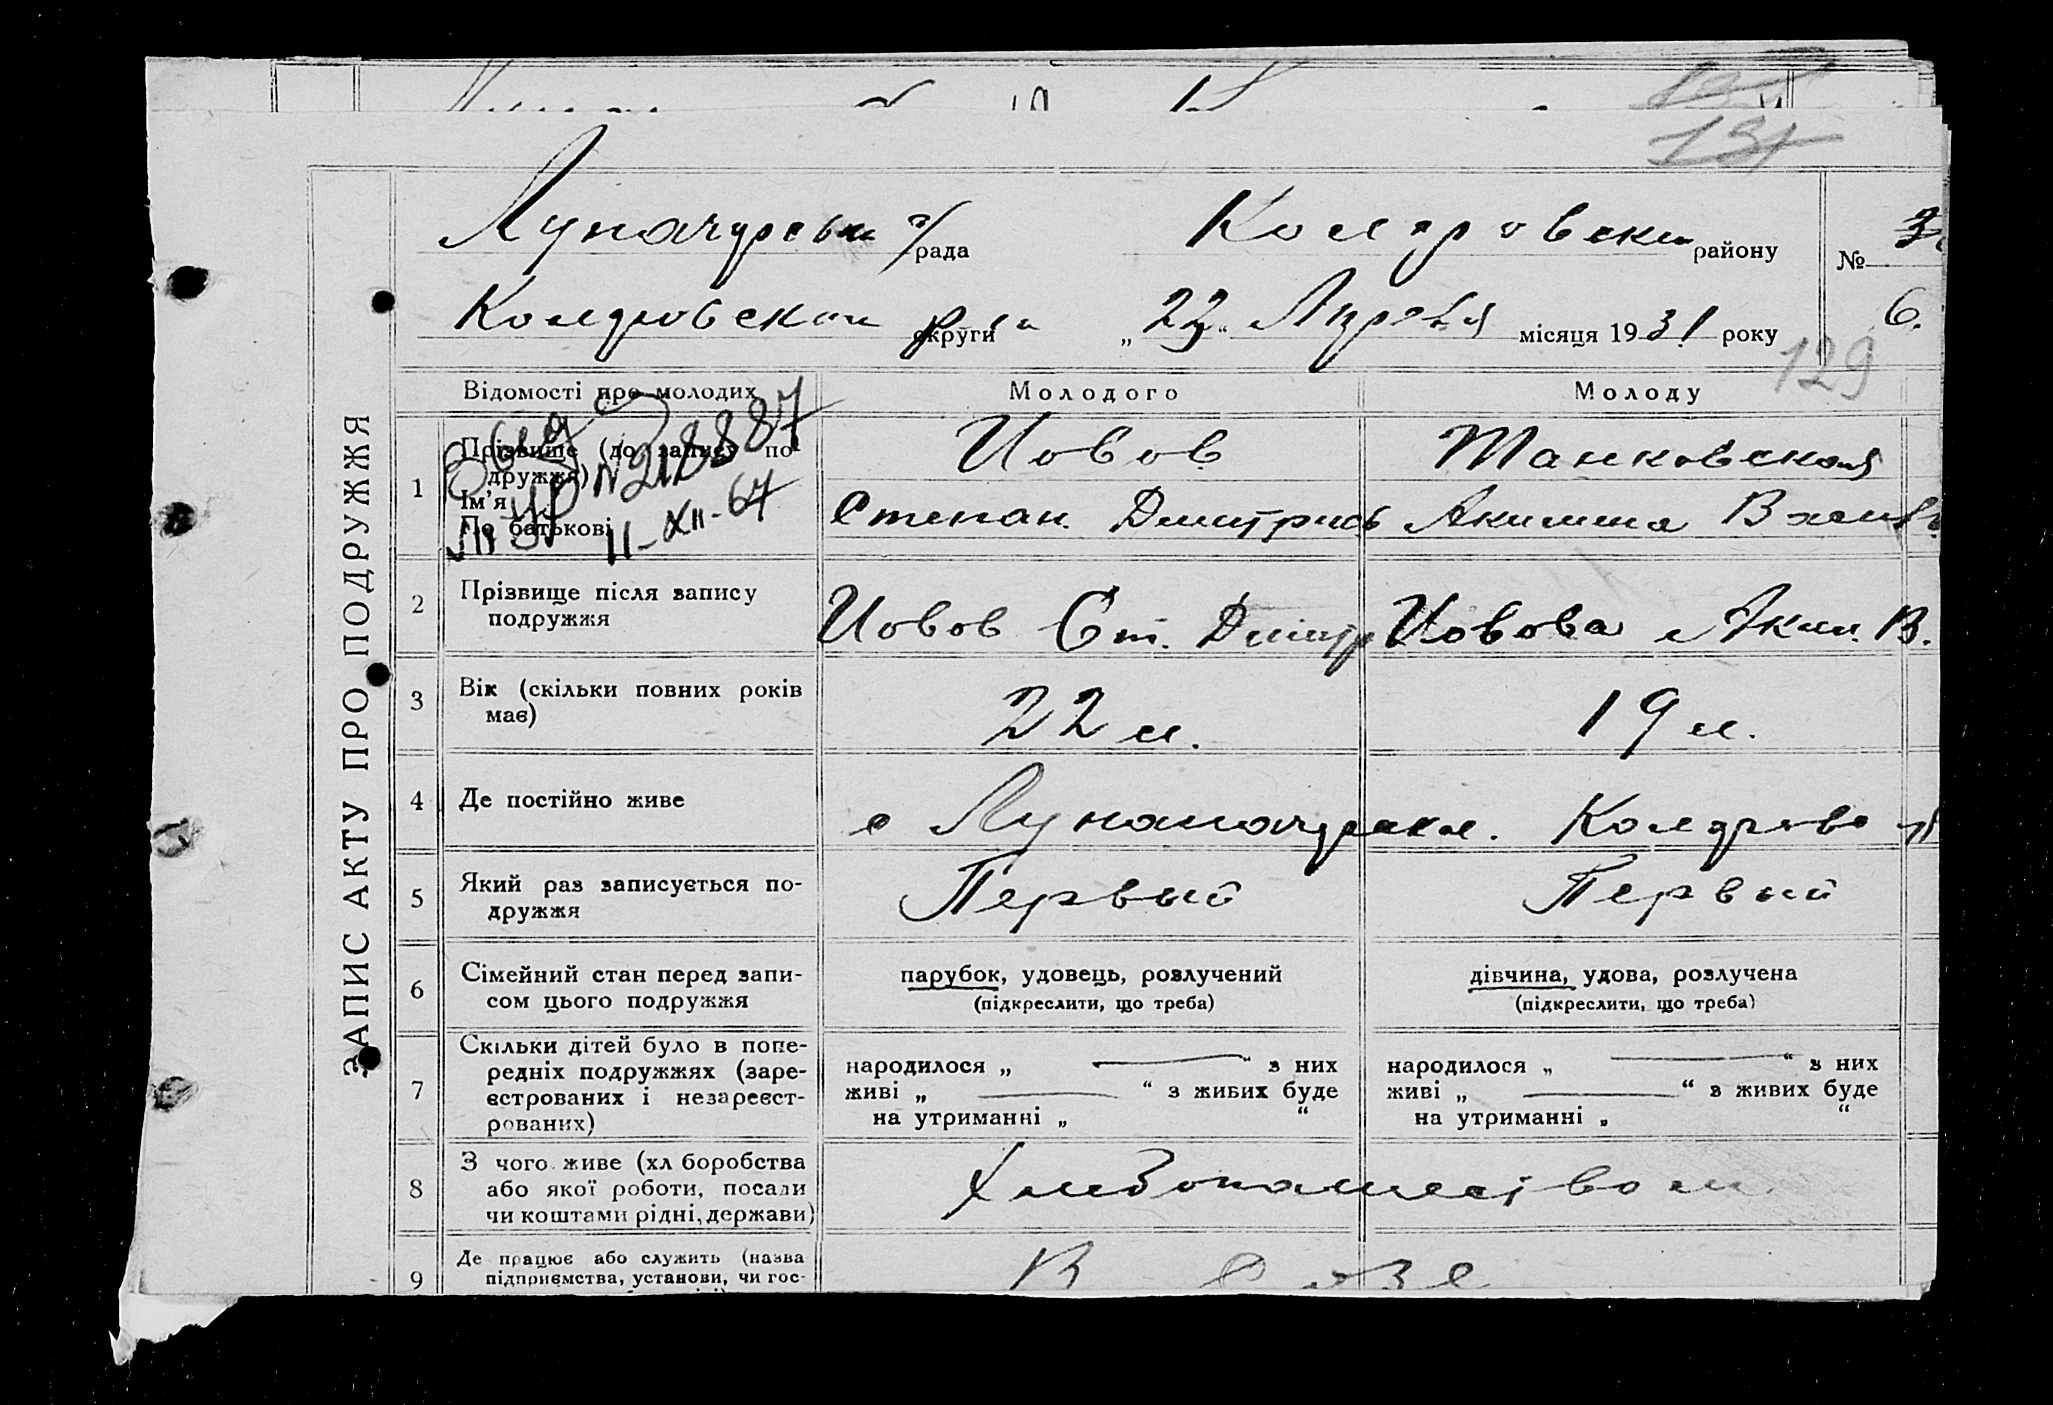 131
Луначарськ с/рада Комаровского району № 3
Комаровскаи округи „23“ Апреля місяця 1931 року 6.
129
Відомості про молодих Молодого Молоду
ЗАПИС АКТУ ПРО ПОДРУЖЖЯ
1 Прізвище (до запису подружжя) Иовов Танковская
Ім’я
По батькові Степан Дмитриев Акилина
N218887
11-XII-67
2 Прізвище після запису Иовов Ст. Дмитр Иовова Акил. В.
подружжя
3 Вік (скільки повних років 22 л. 19 л.
має)
4 Де постійно живе с
5 Який раз записується по- Первый Первый
дружжя
6 Сімейний стан перед запи- парубок, удовець, розлучений дівчина, удова, розлучена
сом цього подружжя (підкреслити, що треба) (підкреслити, що треба)
7 Скільки дітей було в попе-
редніх подружжях (заре- народилося „ “ з них народилося „ “ з них
єстрованих і незареєст- живі „ “ з живих буде живі „ “ з живих буде
рованих) на утриманні „ “ на утриманні „ “
8 З чого живе (хліборобства
або якої роботи, посади Хлебопашеством
чи коштами рідні, держави)
9 Де працює або служить (назва В
підприємства, установи, чи гос-